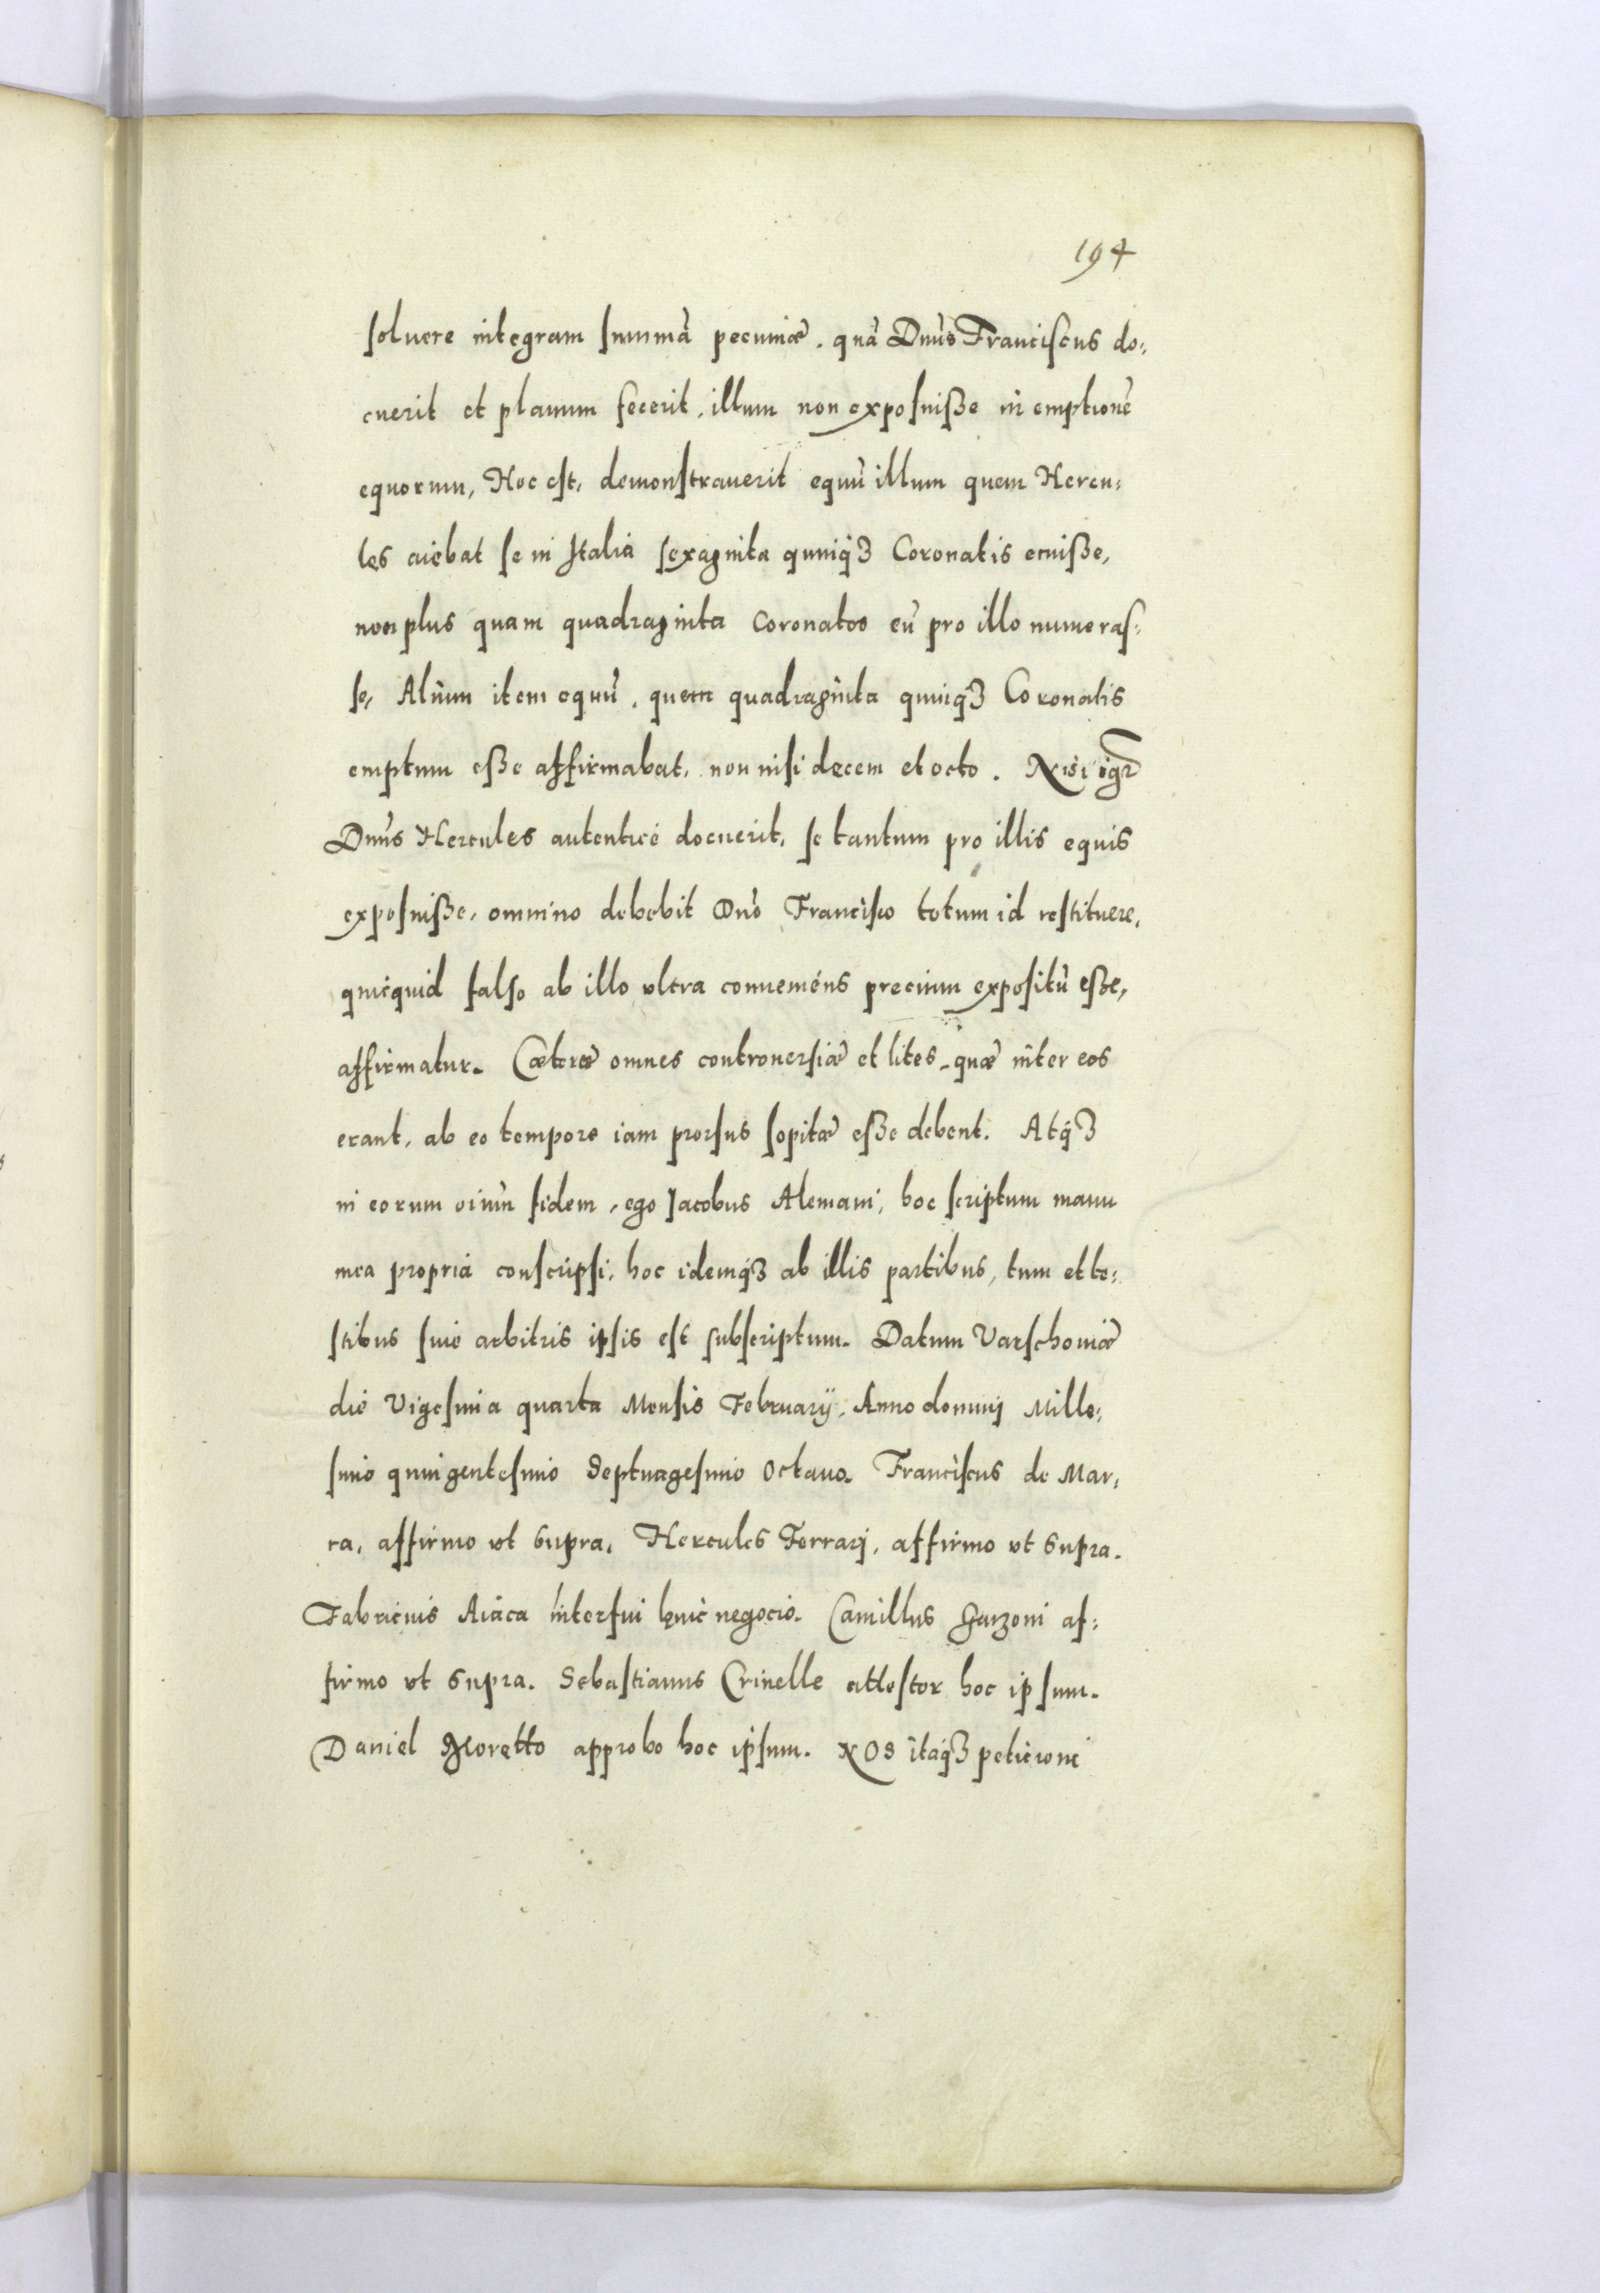 194
soluere integram summā pecuniæ, quā Dnūs Franciscus do:
cuerit et planum fecerit, illum non exposuisse in emptionē
equorum, Hoc est, demonstrauerit equū illum quem Hercu:
les aiebat se in Italia sexaginta quinq́ꝫ Coronatis emisse,
non plus quam quadraginta Coronatos eū pro illo numeras:
se, Alium item equū, quem quadraginta quinq́ꝫ Coronatis
emptum esse affirmabat, non nisi decem et octo. Nisi igr̄
Dnūs Hercules autenticè docuerit, se tantum pro illis equis
exposuisse, omnino debebit Dnō Francisco totum id restituere,
quicquid falso ab illo vltra conueniens precium expositū esse,
affirmatur. Cæteræ omnes controuersiæ et lites, quæ inter eos
erant, ab eo tempore iam prorsus sopitæ esse debent. Atq́ꝫ
in eorum oīum fidem, ego Jacobus Alemani, hoc scriptum manu
mea propria conscripsi, hoc idemq́ꝫ ab illis partibus, tum et te:
stibus siue arbitris ipsis est subscriptum. Datum Varschouiæ
die Vigesima quarta Mensis February, Anno dominj Mille:
simo quingentesimo Septuagesimo Octauo. Franciscus de Mar:
ca, affirmo vt supra, Hercules Ferrarj, affirmo vt supra.
Fabricius Aiaca interfui huic negocio. Camillus Garzoni af:
firmo vt supra. Sebastianus Crinelle attestor hoc ipsum.
Daniel Moretto approbo hoc ipsum. NOS itaq́ꝫ peticioni